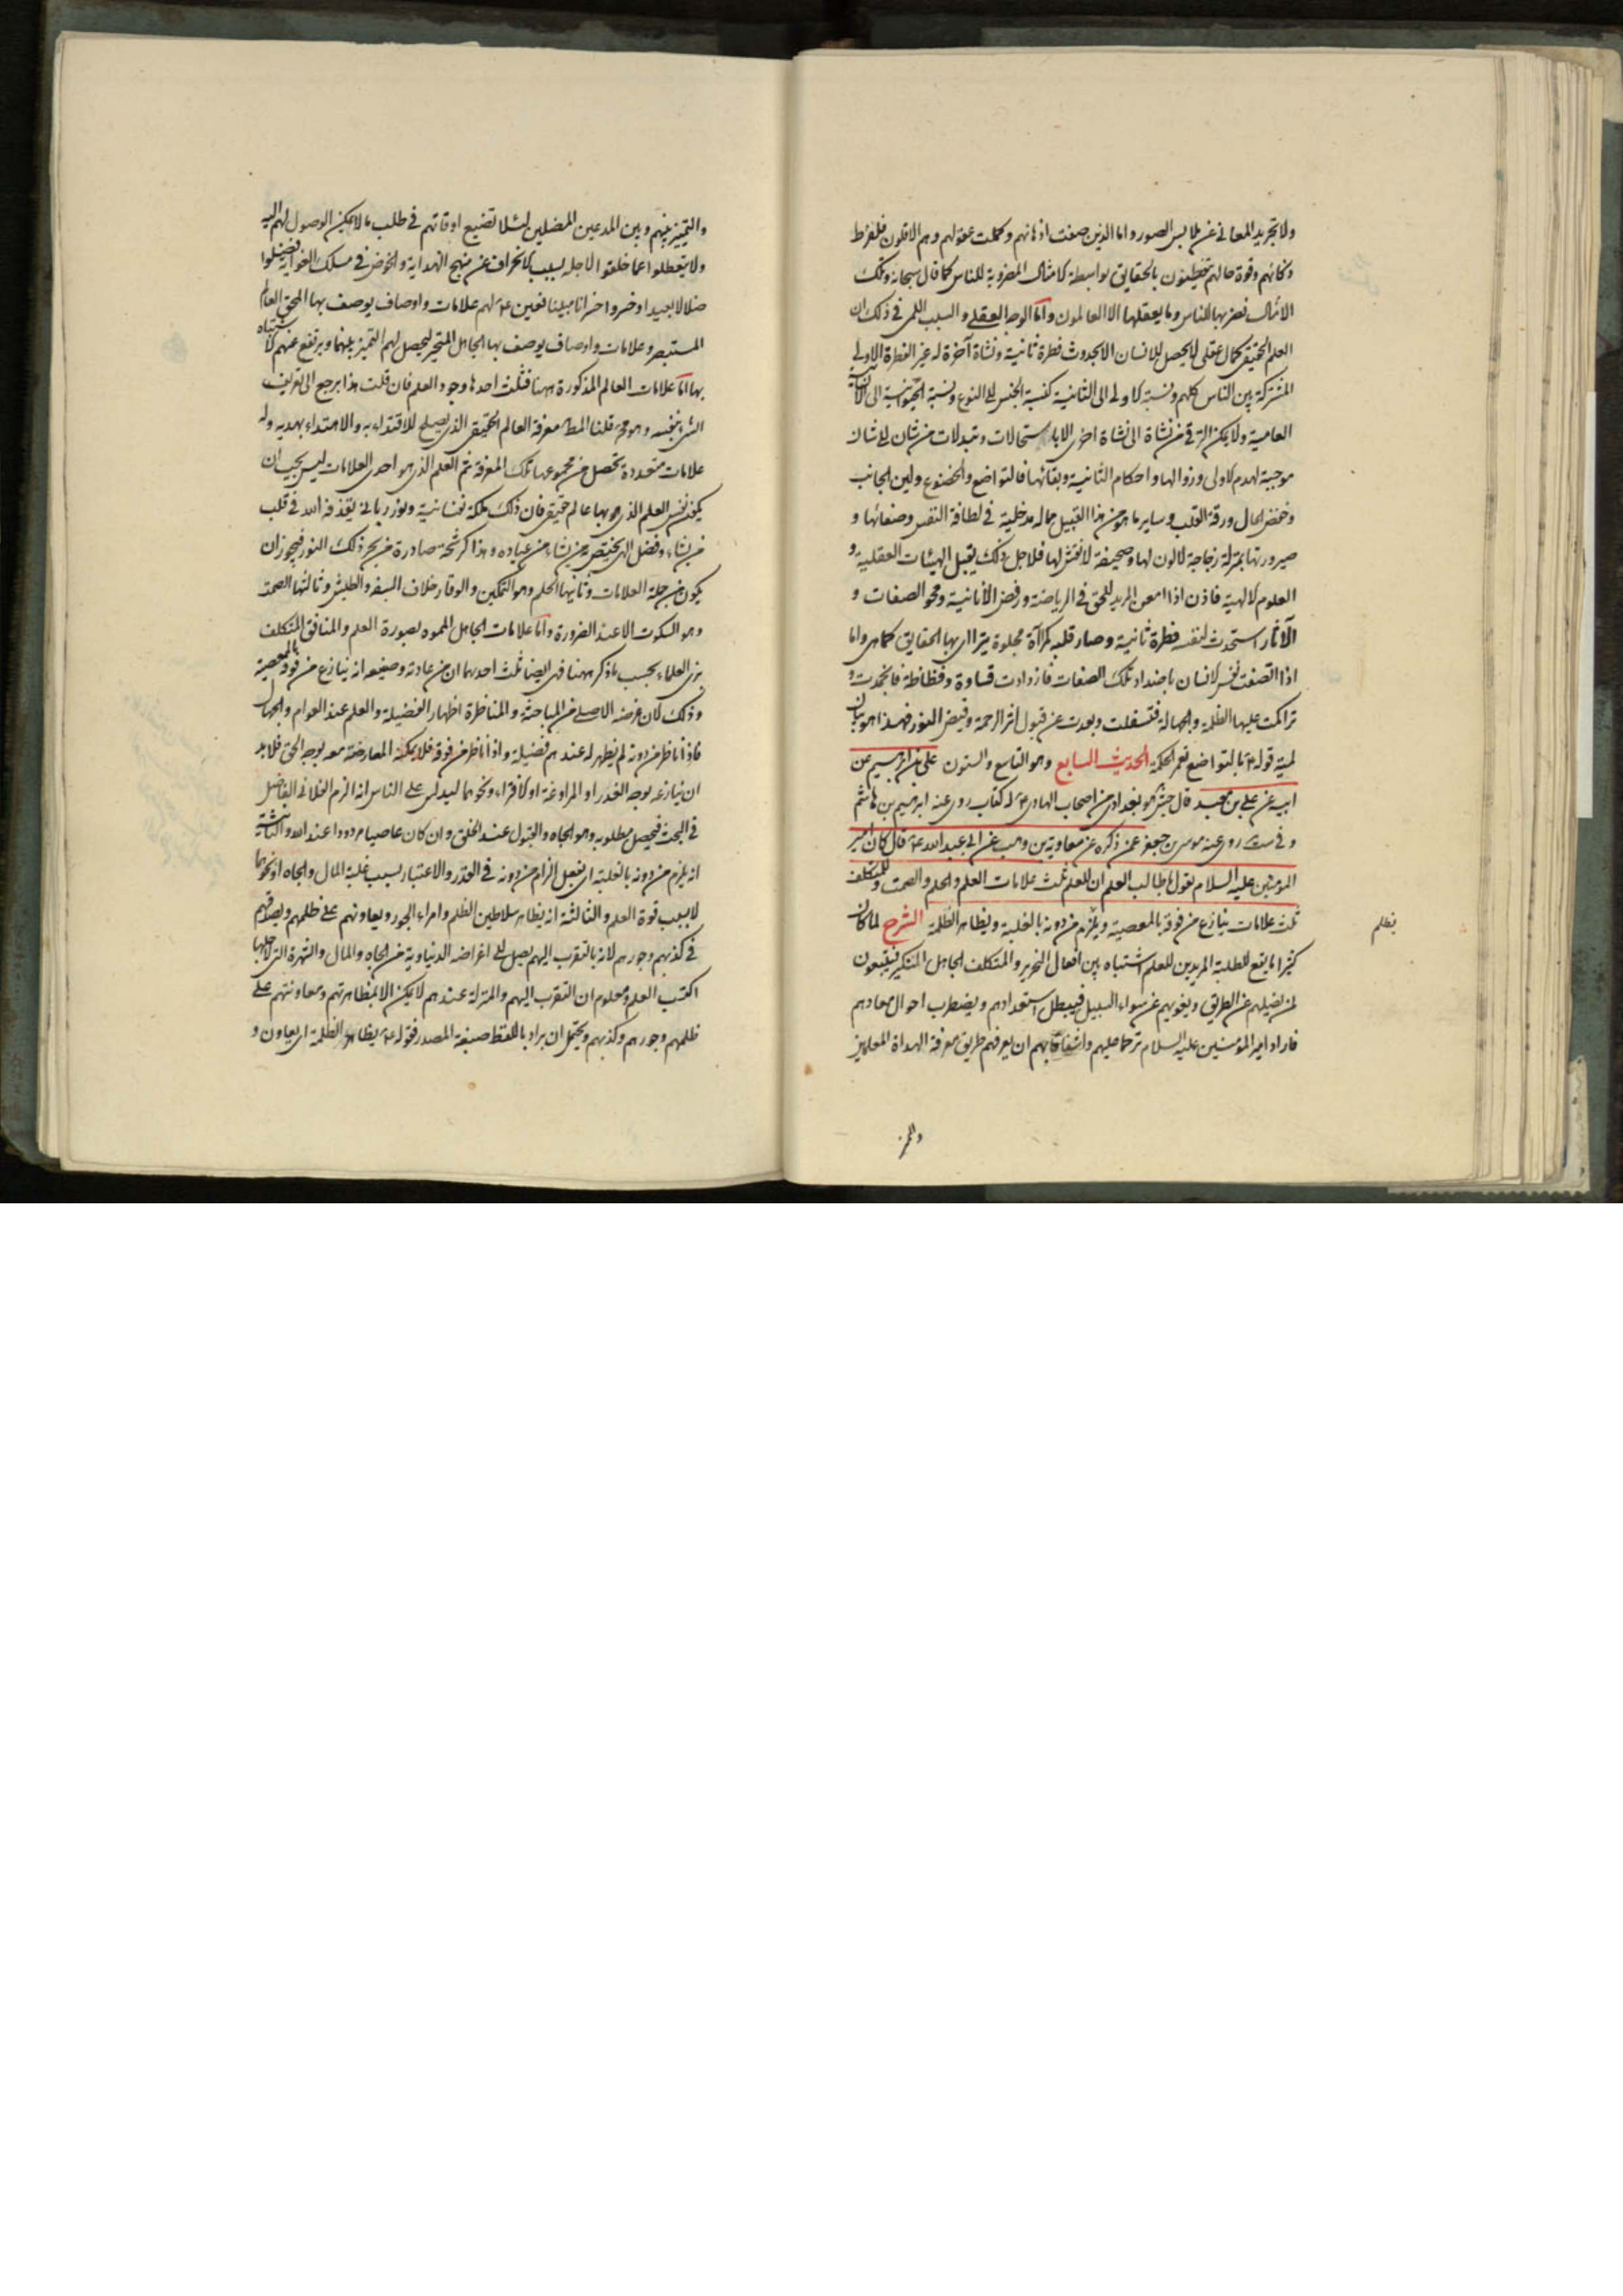 ولا تجريد المعانى عن ملابس الصور واما الذين صفت اذهانهم وكملت عقولهم وهم الاقلون فلفرط
ذكائهم وقوة حالهم يحيطون بالحقايق بواسطة الامثال المضروبة للناس كما قال سبحانه وتلك
الامثال نضربها للناس وما يعقلها الا العالمون واما الوجه العقلى والسبب اللمى فى ذلك ان
العلم الحقيقى كمال عقلى لا يحصل للانسان الا بحدوث فطرة ثانية ونشاة آخرة له غير الفطرة الاولى
المشتركة بين الناس كلهم ونسبة الاولى الى الثانية كنسبة الجنس الى النوع ونسبة الحيوانية الى الانسانية
العامية ولا يمكن الترقى من نشاة الى نشاة اخرى الا باستحالات وتبدلات من شان الى شان
موجبة لهدم الاولى وزوالها واحكام الثانية وبقائها فالتواضع والخضوع ولين الجانب
وخفض البال ورقة القلب وساير ما هو من هذا القبيل مما له مدخلية فى لطافة النفس وصفائها و
صيرورتها بمنزلة زجاجة لا لون لها وصحيفة لا نقش لها فلاجل ذلك يقبل الهيئات العقلية و
العلوم الالهية فاذن اذا امعن المريد للحق فى الرياضة ورفض الانانية ومحو الصفات و
الآثار استحدث لنفسه فطرة ثانية وصار قلبه كمرآة مجلوة يتراءى بها الحقايق كما هى واما
اذا اتصفت نفس الانسان باضداد تلك الصفات فازدادت قساوة وفظاظة فانجمدت و
تراكمت عليها الظلمة والجهالة فتسفلت وبعدت عن قبول اثر الرحمة وفيض النور فهذا هو بيان
لمية قوله ع بالتواضع تعمر الحكمة الحديث السابع وهو التاسع والستون على بن ابرهيم عن
ابيه عن على بن معبد قال جش هو بغدادى من اصحاب الهادى ع له كتاب روى عنه ابرهيم بن هاشم
وفى ست روى عنه موسى بن جعفر عمن ذكره عن معاوية بن وهب عن ابى عبد الله ع قال كان امير
المؤمنين عليه السلام يقول يا طالب العلم ان للعلم ثلث علامات العلم والحلم والصمت وللمتكلف
ثلث علامات ينازع من فوقه بالمعصية ويلزم من دونه بالغلبة ويظاهر الظلمة الشرح لما كان
يظلم
كثيرا ما يقع للطلبة المريدين للعلم اشتباه بين افعال النحرير والمتكلف الجاهل المتكبر فيتبعون
لمن يضلهم عن الطريق ويغويهم عن سواء السبيل فيبطل استعدادهم ويضطرب احوال معادهم
فاراد امير المؤمنين عليه السلام ترحما عليهم واشفاقا بهم ان يعرفهم طريق معرفة الهداة المعلمين
والتميز
والتميز بينهم وبين المدعين المضلين لئلا تضيع اوقاتهم فى طلب ما لا يمكن الوصول لهم اليه
ولا يتعطلوا عما خلقوا لاجله بسبب الانحراف عن منهج الهداية والخوض فى مسلك الغواية فضلوا
ضلالا بعيدا وخسروا خسرانا مبينا فعين ع لهم علامات واوصاف يوصف بها المحق العالم
المستبصر وعلامات واوصاف يوصف بها الجاهل المتحير ليحصل لهم التميز بينهما ويرتفع عنهم الاشتباه
بها اما علامات العالم المذكورة ههنا فثلثة احدها وجود العلم فان قلت هذا يرجع الى تعريف
الشى بنفسه وهو مح قلنا المط معرفة العالم الحقيقى الذى يصلح للاقتداء به والاهتداء بهديه وله
علامات متعددة تحصل من مجموعها تلك المعرفة ثم العلم الذى هو احدى العلامات ليس يجب ان
يكون نفس العلم الذى هو بها عالم حقيقى فان ذلك ملكة نفسانية ونور ربانى يقذفه الله فى قلب
من يشاء وفضل الهى يختص به من يشاء من عباده وهذا كرشحة صادرة من بحر ذلك النور فيجوز ان
يكون من جملة العلامات وثانيها الحلم وهو التمكين والوقار خلاف السفه والطيش وثالثها الصمت
وهو السكوت الا عند الضرورة واما علامات الجاهل المموه بصورة العلم والمنافق المتكلف
بزى العلماء بحسب ما ذكر ههنا فهى ايضا ثلث احديها ان من عادته وصنيعه انه ينازع من فوقه بالمعصية
وذلك لان غرضه الاصلى من المباحثة والمناظرة اظهار الفضيلة والعلم عند العوام والجهال
فاذا ناظر من دونه لم يظهر له عندهم فضيلة واذا ناظر من فوقه فلا يمكنه المعارضة معه بوجه الحق فلا بد
ان ينازعه بوجه الغدر او المراوغة او الافتراء ونحوهما ليدلس على الناس انه الزم الفلانى الفاضل
فى البحث فيحصل مطلوبه وهو الجاه والقبول عند الخلق وان كان عاصيا مردودا عند الله والثانية
انه يلزم من دونه بالغلبة اى يفعل الزام من دونه فى القدر والاعتبار بسبب غلبة المال والجاه او نحوهما
لا بسبب قوة العلم والثالثة انه يظاهر سلاطين الظلم وامراء الجور ويعاونهم على ظلمهم ويصدقهم
فى كذبهم وجورهم لانه بالتقرب اليهم يصل الى اغراضه الدنياوية من الجاه والمال والشهرة التى لاجلها
اكتسب العلم ومعلوم ان التقرب اليهم والمنزلة عندهم لا يمكن الا بمظاهرتهم ومعاونتهم على
ظلمهم وجورهم وكذبهم ويحتمل ان يراد باللفظ صيغة المصدر فقوله ع يظاهر الظلمة اى يعاون و